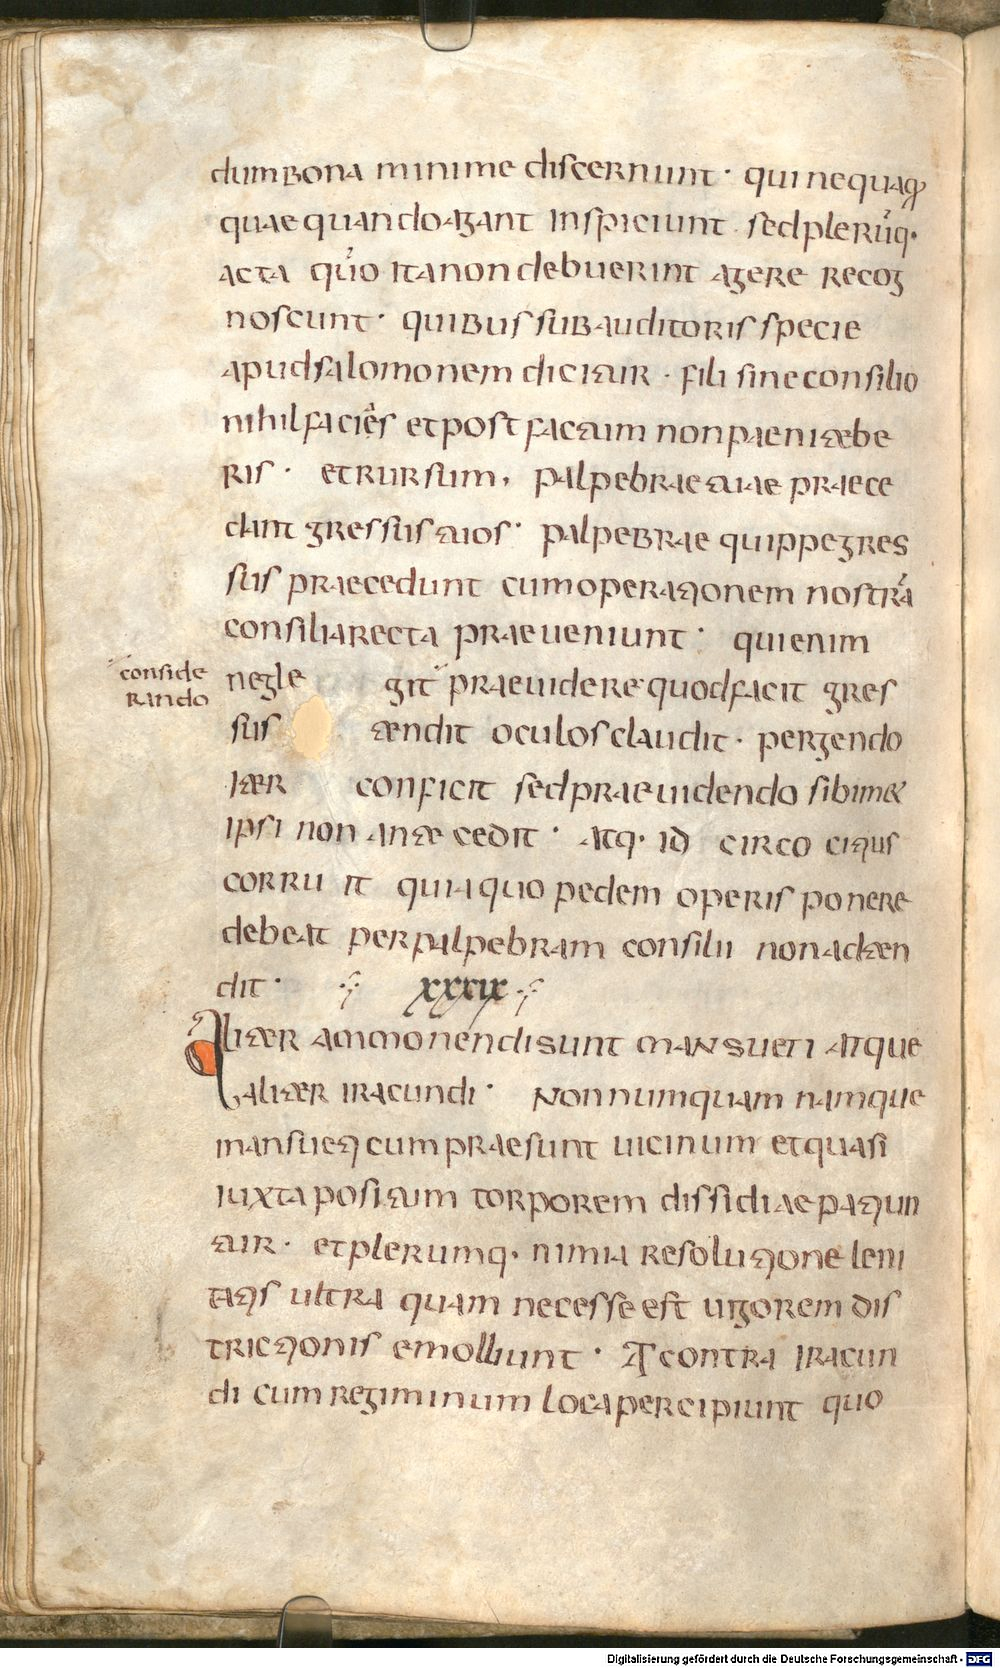 dum bona minime discernunt · qui nequaq̄
quae quando agant inspiciunt · sed plerūq·
acta qūo ita non debuerint agere recog
noscunt · quibus sub auditoris specie
apud salomonem dicitur · fili sine consilio
nihil facies et post factum non paenitebe
ris · et rursum, palpebrae tuae praece
dant gressus tuos · palpebrae quippe gres
sus praecedunt cum operationem nostrā
consilia recta praeueniunt · qui enim
conside
rando
neglegit praeuidere quod facit gres
sus tendit oculos claudit · pergendo
iter conficit sed praeuidendo sibimet
ipsi non antecedit · atq· idcirco citius
corruit quia quo pedem operis ponere
debeat per palpebram consilii non adten
dit · xxxix
Aliter ammonendi sunt mansueti atque
aliter iracundi · Nonnumquam namque
mansueti cum praesunt uicinum et quasi
iuxta positum torporem dissidiae patiun
tur · et plerumq· nimia resolutione leni
tatis ultra quam necesse est uigorem dis
trictionis emolliunt · At contra iracun
di cum regiminum loca percipiunt quo
Digitalisierung gefördert durch die Deutsche Forschungsgemeinschaft - DFG